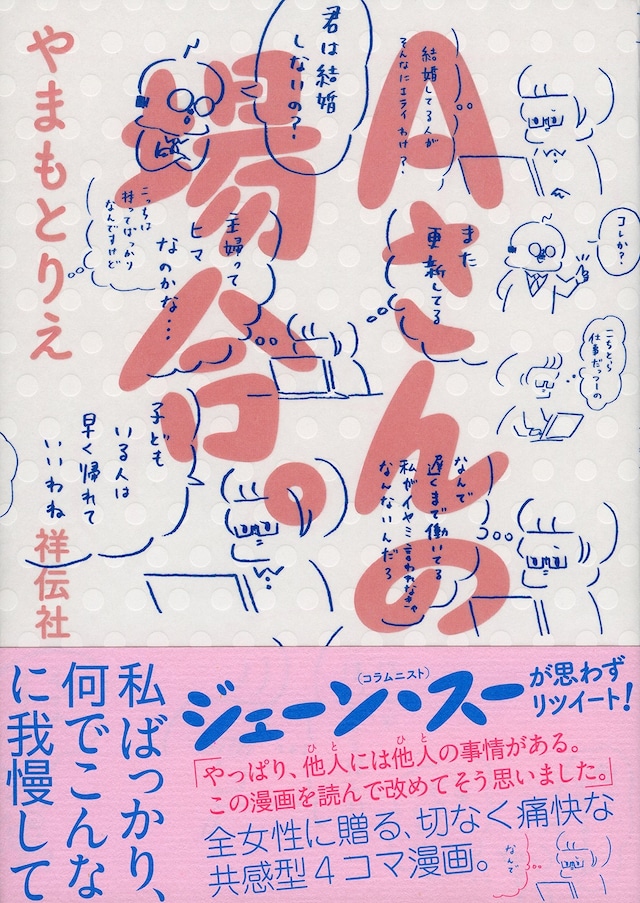 Aさんの
場合。
やまもとりえ
祥伝社
結婚してる人が
そんなにエライわけ?
君は結婚
しないの?
コレか?
こちとら
仕事だっつーの
また
更新してる
主婦って
ヒマ
なのかな…
こっちは
持ってばっかり
なんですけど
なんで
遅くまで働いてる
私がイヤミ言われなきゃ
なんないんだろ
子ども
いる人は
早く帰れて
いいわね
私ばっかり、
何でこんな
に我慢して
(コラムニスト)
ジェーン・スーが思わず
リツイート!
「やっぱり、他人には他人の事情がある。
ひと
ひと
この漫画を読んで改めてそう思いました。」
全女性に贈る、切なく痛快な
共感型4コマ漫画。
なんで